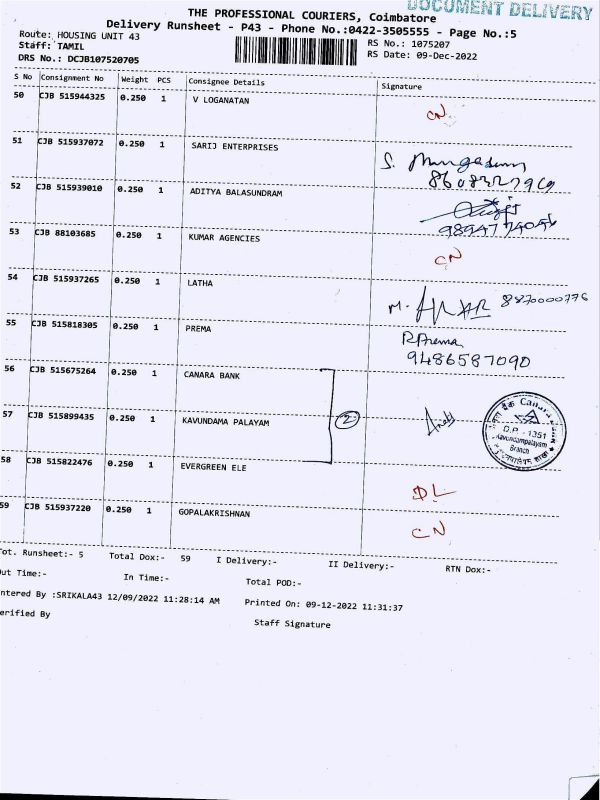 DOCUMENT DELIVERY
THE PROFESSIONAL COURIERS, Coimbatore
Delivery Runsheet - P43 - Phone No.:0422-3505555 - Page No.:5
Route: HOUSING UNIT 43
RS No.: 1075207
Staff: TAMIL
RS Date: 09-Dec-2022
DRS No.: DCJB107520705
S No Consignment No Weight PCS Consignee Details Signature
50 CJB 515944325 0.250 1 V LOGANATAN CN
51 CJB 515937072 0.250 1 SARIJ ENTERPRISES S.
52 CJB 515939010 0.250 1 ADITYA BALASUNDRAM
53 CJB 88103685 0.250 1 KUMAR AGENCIES CN
54 CJB 515937265 0.250 1 LATHA M. 8870000776
55 CJB 515818305 0.250 1 PREMA R Prema
9486587090
56 CJB 515675264 0.250 1 CANARA BANK
57 CJB 515899435 0.250 1 KAVUNDAMA PALAYAM 2
Canara
D.P. - 1351
Kavundampalayam
Branch
58 CJB 515822476 0.250 1 EVERGREEN ELE DL
59 CJB 515937220 0.250 1 GOPALAKRISHNAN CN
Tot. Runsheet:- 5 Total Dox:- 59 I Delivery:- II Delivery:- RTN Dox:-
Out Time:- In Time:- Total POD:-
ntered By :SRIKALA43 12/09/2022 11:28:14 AM Printed On: 09-12-2022 11:31:37
erified By Staff Signature